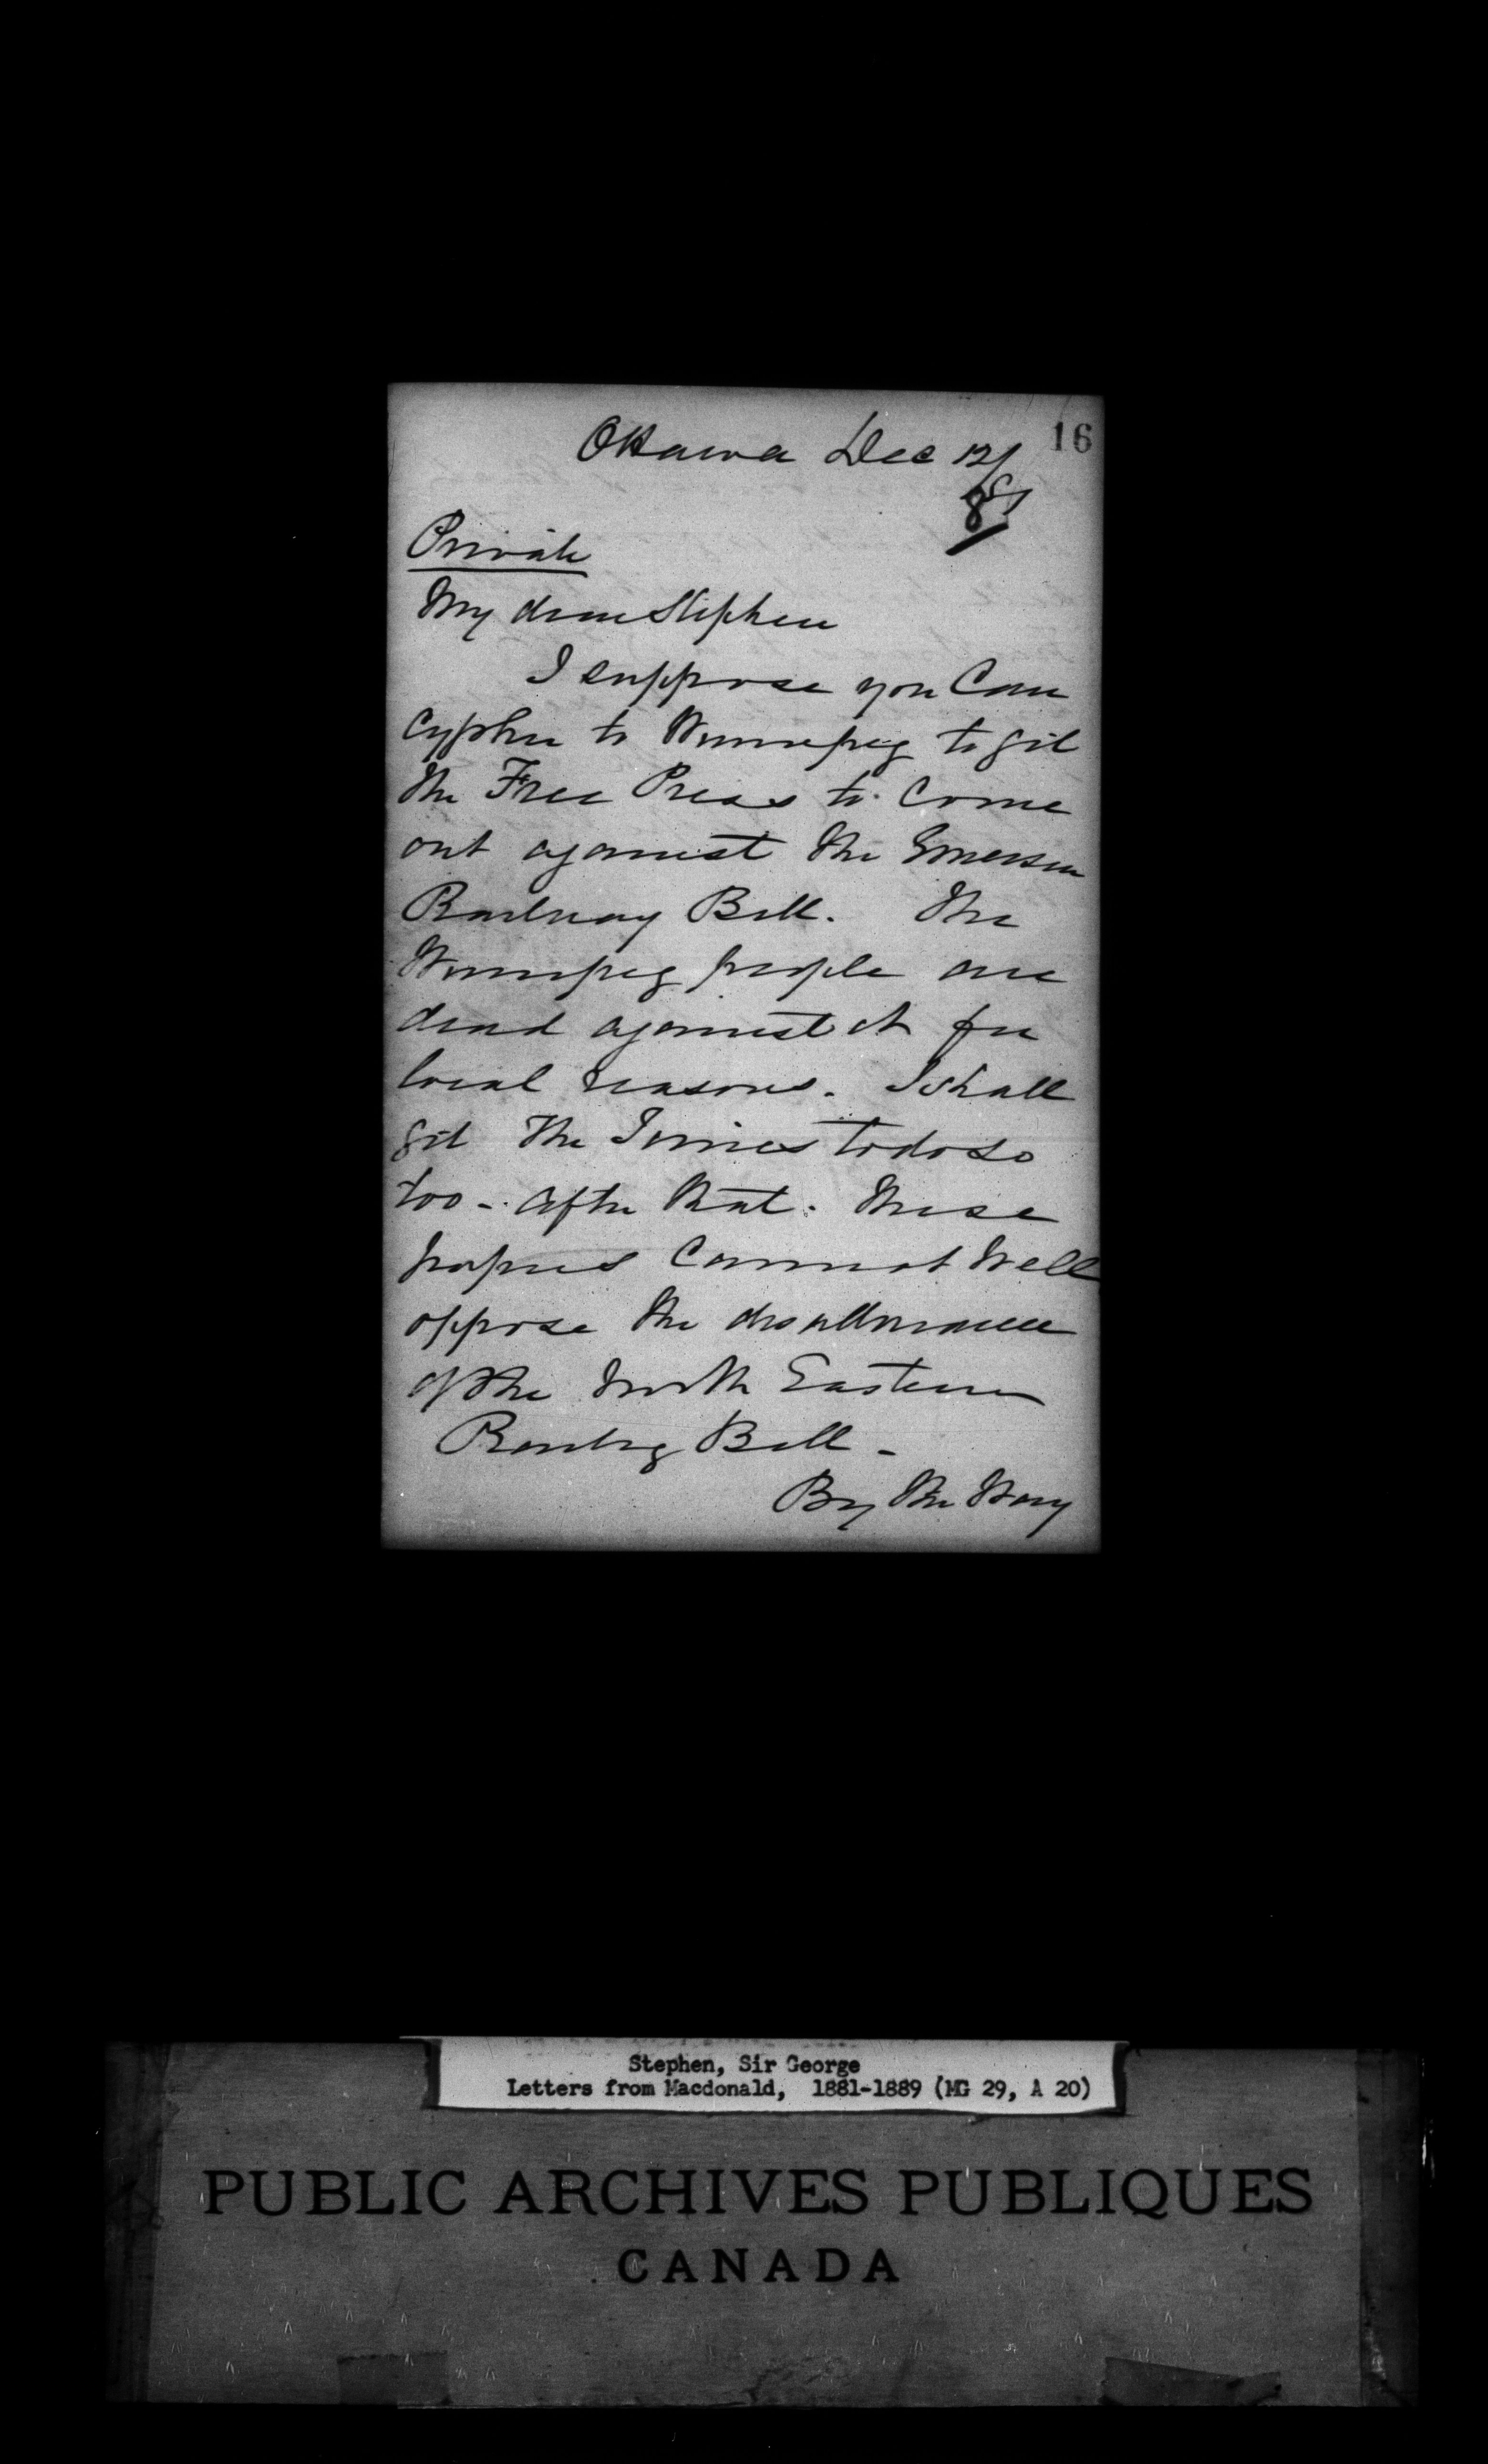 16
Ottawa Dec 12/
Private
My dear Stephen
I suppose you can
cypher to Winnipeg to get
the Free Press to come
out against the Emerson
Railway Bill. The
Winnipeg people are
dead against it for
local reasons. I shall
get the Times to do so
too - After that. These
papers cannot well
oppose the disallowance
of the North Eastern
Railwy Bill -
By the Way
Stephen, Sir George
Letters from Macdonald, 1881-1889 (MG 29, A 20)
PUBLIC ARCHIVES PUBLIQUES
CANADA